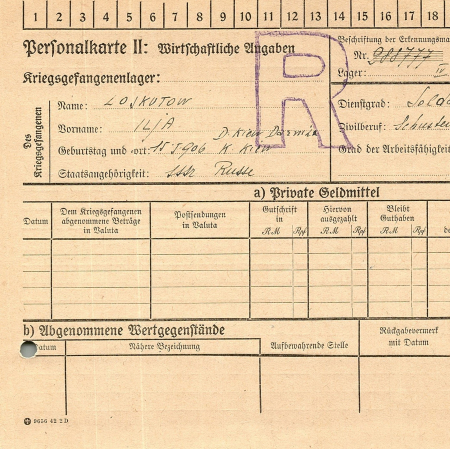 1 2 3 4 5 6 7 8 9 10 11 12 13 14 15 16 17 18
Personalkarte II: Wirtschaftliche Angaben
Beschriftung der Erkennungsma
Nr. 288777
Kriegsgefangenenlager:
Lager: IV
R
Des Kriegsgefangenen
Name: LOSKUTOW
Dienstgrad: Solda
Vorname: ILJA
Zivilberuf: Schuster
D. Kiew
Geburtstag und -ort: K. Kiew
Grad der Arbeitsfähigkeit
Staatsangehörigkeit: SSSR Russe
a) Private Geldmittel
Datum
Dem Kriegsgefangenen abgenommene Beträge in Valuta
Postsendungen in Valuta
Gutschrift in RM Rpf
Hiervon ausgezahlt RM Rpf
Bleibt Guthaben RM Rpf
b) Abgenommene Wertgegenstände
Datum
Nähere Bezeichnung
Aufbewahrende Stelle
Rückgabevermerk mit Datum
9656 42 2 D